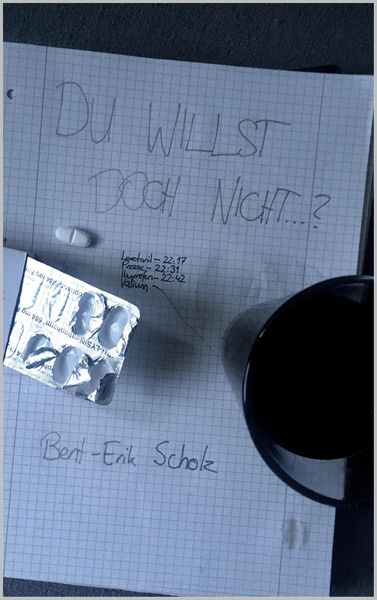 DU WILLST
DOCH NICHT...?
Lexotanil – 22:17
Prozac – 22:31
Ibuprofen – 22:42
Valium
-LYSIN
684 mg
Bent-Erik Scholz